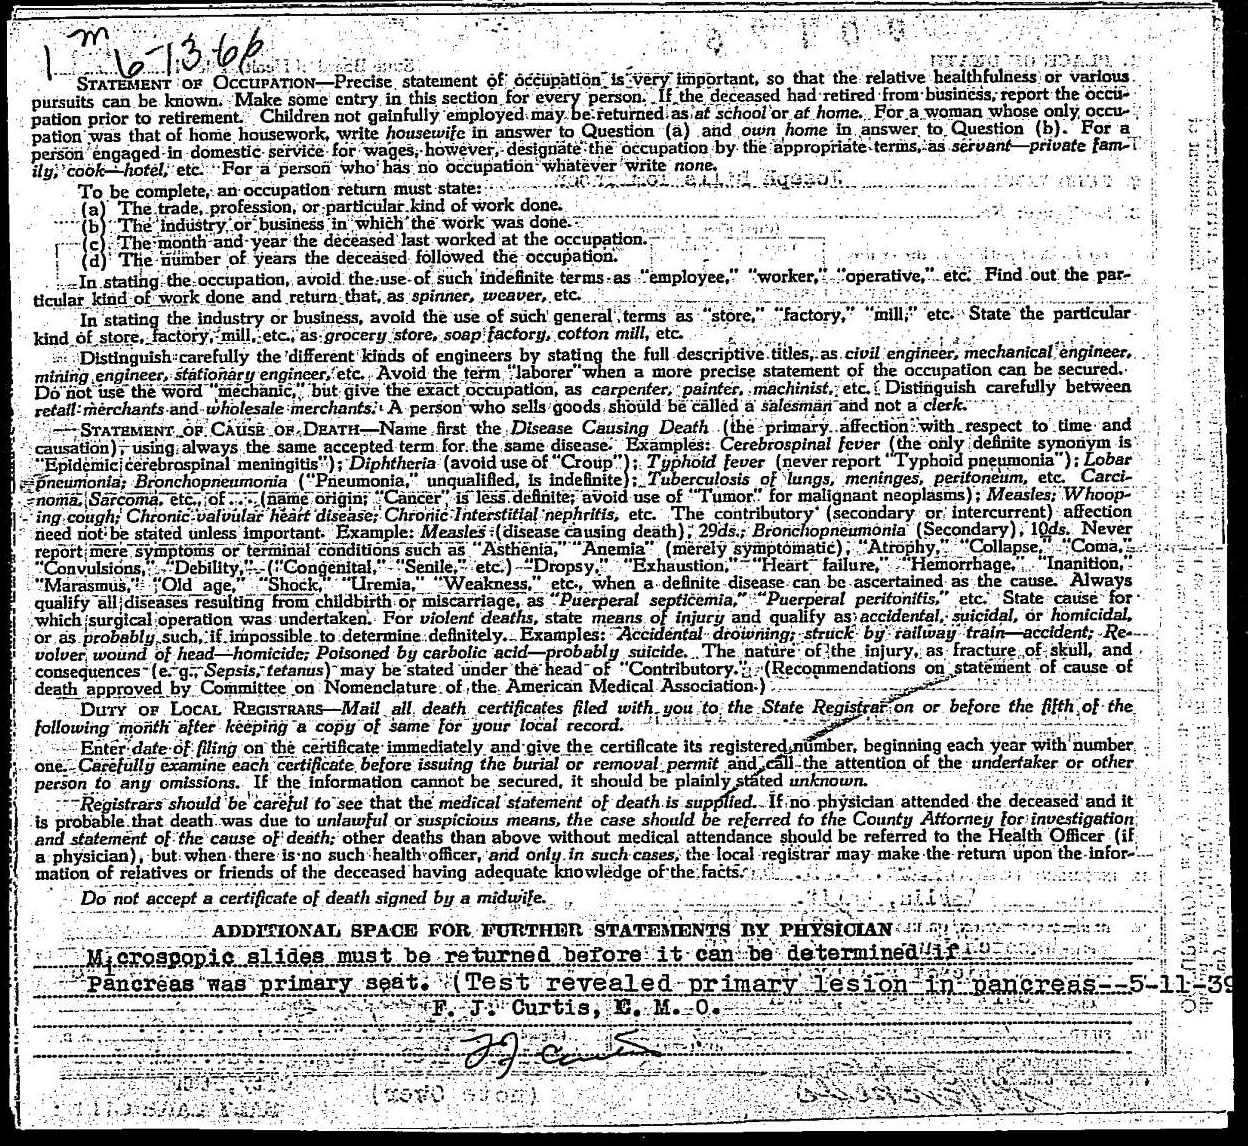 1 m 6-13-66
STATEMENT OF OCCUPATION—Precise statement of occupation is very important, so that the relative healthfulness or various
pursuits can be known. Make some entry in this section for every person. If the deceased had retired from business, report the occu-
pation prior to retirement. Children not gainfully employed may be returned as at school or at home. For a woman whose only occu-
pation was that of home housework, write housewife in answer to Question (a) and own home in answer to Question (b). For a
person engaged in domestic service for wages, however, designate the occupation by the appropriate terms, as servant—private fam-
ily, cook—hotel, etc. For a person who has no occupation whatever write none.
To be complete, an occupation return must state:
(a) The trade, profession, or particular kind of work done.
(b) The industry or business in which the work was done.
(c) The month and year the deceased last worked at the occupation.
(d) The number of years the deceased followed the occupation.
In stating the occupation, avoid the use of such indefinite terms as "employee," "worker," "operative," etc. Find out the par-
ticular kind of work done and return that, as spinner, weaver, etc.
In stating the industry or business, avoid the use of such general terms as "store," "factory," "mill," etc. State the particular
kind of store, factory, mill, etc., as grocery store, soap factory, cotton mill, etc.
Distinguish carefully the different kinds of engineers by stating the full descriptive titles, as civil engineer, mechanical engineer,
mining engineer, stationary engineer, etc. Avoid the term "laborer" when a more precise statement of the occupation can be secured.
Do not use the word "mechanic," but give the exact occupation, as carpenter, painter, machinist, etc. Distinguish carefully between
retail merchants and wholesale merchants. A person who sells goods should be called a salesman and not a clerk.
STATEMENT OF CAUSE OF DEATH—Name first the Disease Causing Death (the primary affection with respect to time and
causation), using always the same accepted term for the same disease. Examples: Cerebrospinal fever (the only definite synonym is
"Epidemic cerebrospinal meningitis"); Diphtheria (avoid use of "Croup"); Typhoid fever (never report "Typhoid pneumonia"); Lobar
pneumonia; Bronchopneumonia ("Pneumonia," unqualified, is indefinite); Tuberculosis of lungs, meninges, peritoneum, etc. Carci-
noma, Sarcoma, etc., of ... (name origin; "Cancer" is less definite; avoid use of "Tumor" for malignant neoplasms); Measles; Whoop-
ing cough; Chronic valvular heart disease; Chronic Interstitial nephritis, etc. The contributory (secondary or intercurrent) affection
need not be stated unless important. Example: Measles (disease causing death), 29ds.; Bronchopneumonia (Secondary), 10ds. Never
report mere symptoms or terminal conditions such as "Asthenia," "Anemia" (merely symptomatic), "Atrophy," "Collapse," "Coma,"
"Convulsions," "Debility," ("Congenital," "Senile," etc.) "Dropsy," "Exhaustion," "Heart failure," "Hemorrhage," "Inanition,"
"Marasmus," "Old age," "Shock," "Uremia," "Weakness," etc., when a definite disease can be ascertained as the cause. Always
qualify all diseases resulting from childbirth or miscarriage, as "Puerperal septicemia," "Puerperal peritonitis," etc. State cause for
which surgical operation was undertaken. For violent deaths, state means of injury and qualify as accidental, suicidal, or homicidal,
or as probably such, if impossible to determine definitely. Examples: Accidental drowning; struck by railway train—accident; Re-
volver wound of head—homicide; Poisoned by carbolic acid—probably suicide. The nature of the injury, as fracture of skull, and
consequences (e. g., Sepsis, tetanus) may be stated under the head of "Contributory." (Recommendations on statement of cause of
death approved by Committee on Nomenclature of the American Medical Association.)
DUTY OF LOCAL REGISTRARS—Mail all death certificates filed with you to the State Registrar on or before the fifth of the
following month after keeping a copy of same for your local record.
Enter date of filing on the certificate immediately and give the certificate its registered number, beginning each year with number
one. Carefully examine each certificate before issuing the burial or removal permit and call the attention of the undertaker or other
person to any omissions. If the information cannot be secured, it should be plainly stated unknown.
Registrars should be careful to see that the medical statement of death is supplied. If no physician attended the deceased and it
is probable that death was due to unlawful or suspicious means, the case should be referred to the County Attorney for investigation
and statement of the cause of death; other deaths than above without medical attendance should be referred to the Health Officer (if
a physician), but when there is no such health officer, and only in such cases, the local registrar may make the return upon the infor-
mation of relatives or friends of the deceased having adequate knowledge of the facts.
Do not accept a certificate of death signed by a midwife.
ADDITIONAL SPACE FOR FURTHER STATEMENTS BY PHYSICIAN
Microspopic slides must be returned before it can be determined if
Pancreas was primary seat. (Test revealed primary lesion in pancreas--5-11-39
F. J. Curtis, C. M. O.
F J Curtis